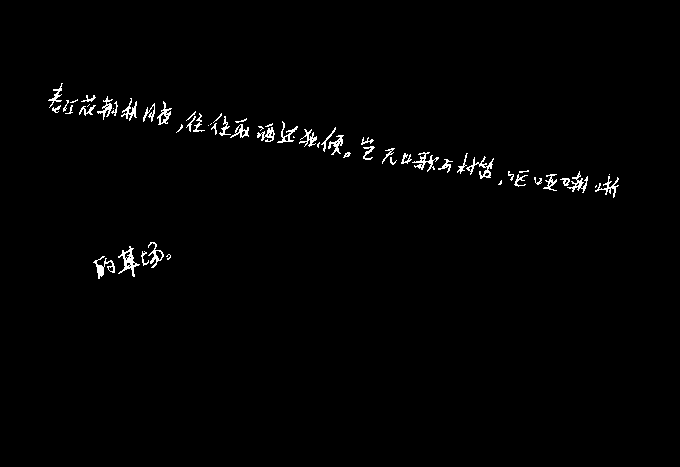 春江花朝秋月夜，往往取酒还独倾。岂无山歌与村笛，呕哑嘲哳
的草场。